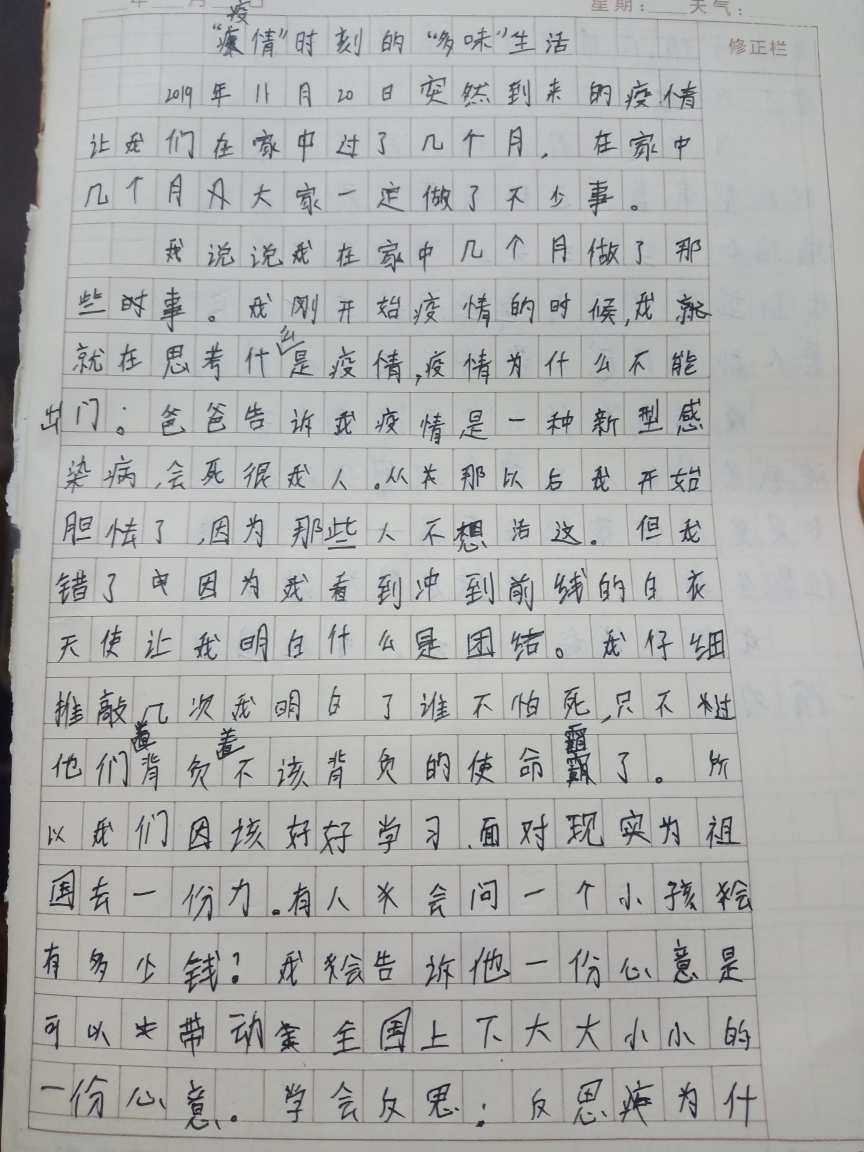 年 月 日
星期： 天气：
修正栏
疫
"情"时刻的"多味"生活
2019年11月20日突然到来的疫情
让我们在家中过了几个月，在家中
几个月大家一定做了不少事。
我说说我在家中几个月做了那
些时事。我刚开始疫情的时候，我就
就在思考什么是疫情，疫情为什么不能
出门。爸爸告诉我疫情是一种新型感
染病，会死很人。从那以后我开始
胆怯了，因为那些人不想活这。但我
错了因为我看到冲到前线的白衣
天使让我明白什么是团结。我仔细
推敲几次我明白了谁不怕死，只不过
他们背负着不该背负的使命了。所
以我们因该好好学习，面对现实为祖
国去一份力。有人会问一个小孩会
有多少钱？我会告诉他一份心意是
可以带动全国上下大大小小的
一份心意。学会反思：反思为什